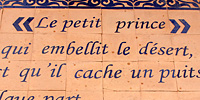 « Le petit prince »
qui embellit le désert,
st qu'il cache un puits
lque part